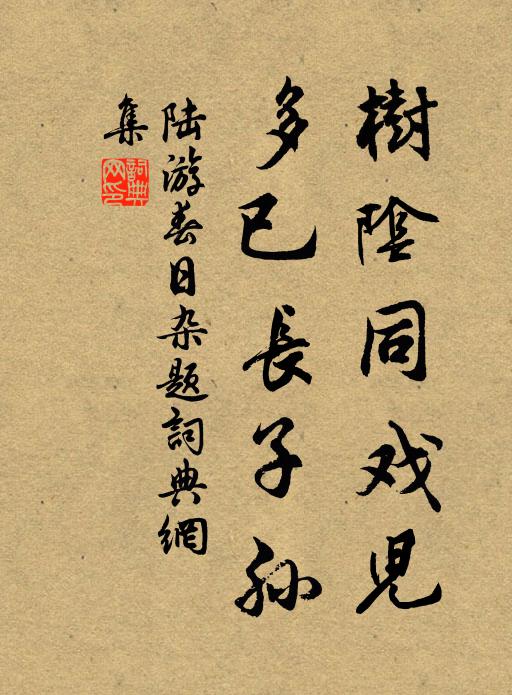 樹陰同戏児
多已長子孫
陆游春日杂题詞典網
集
詞典网印